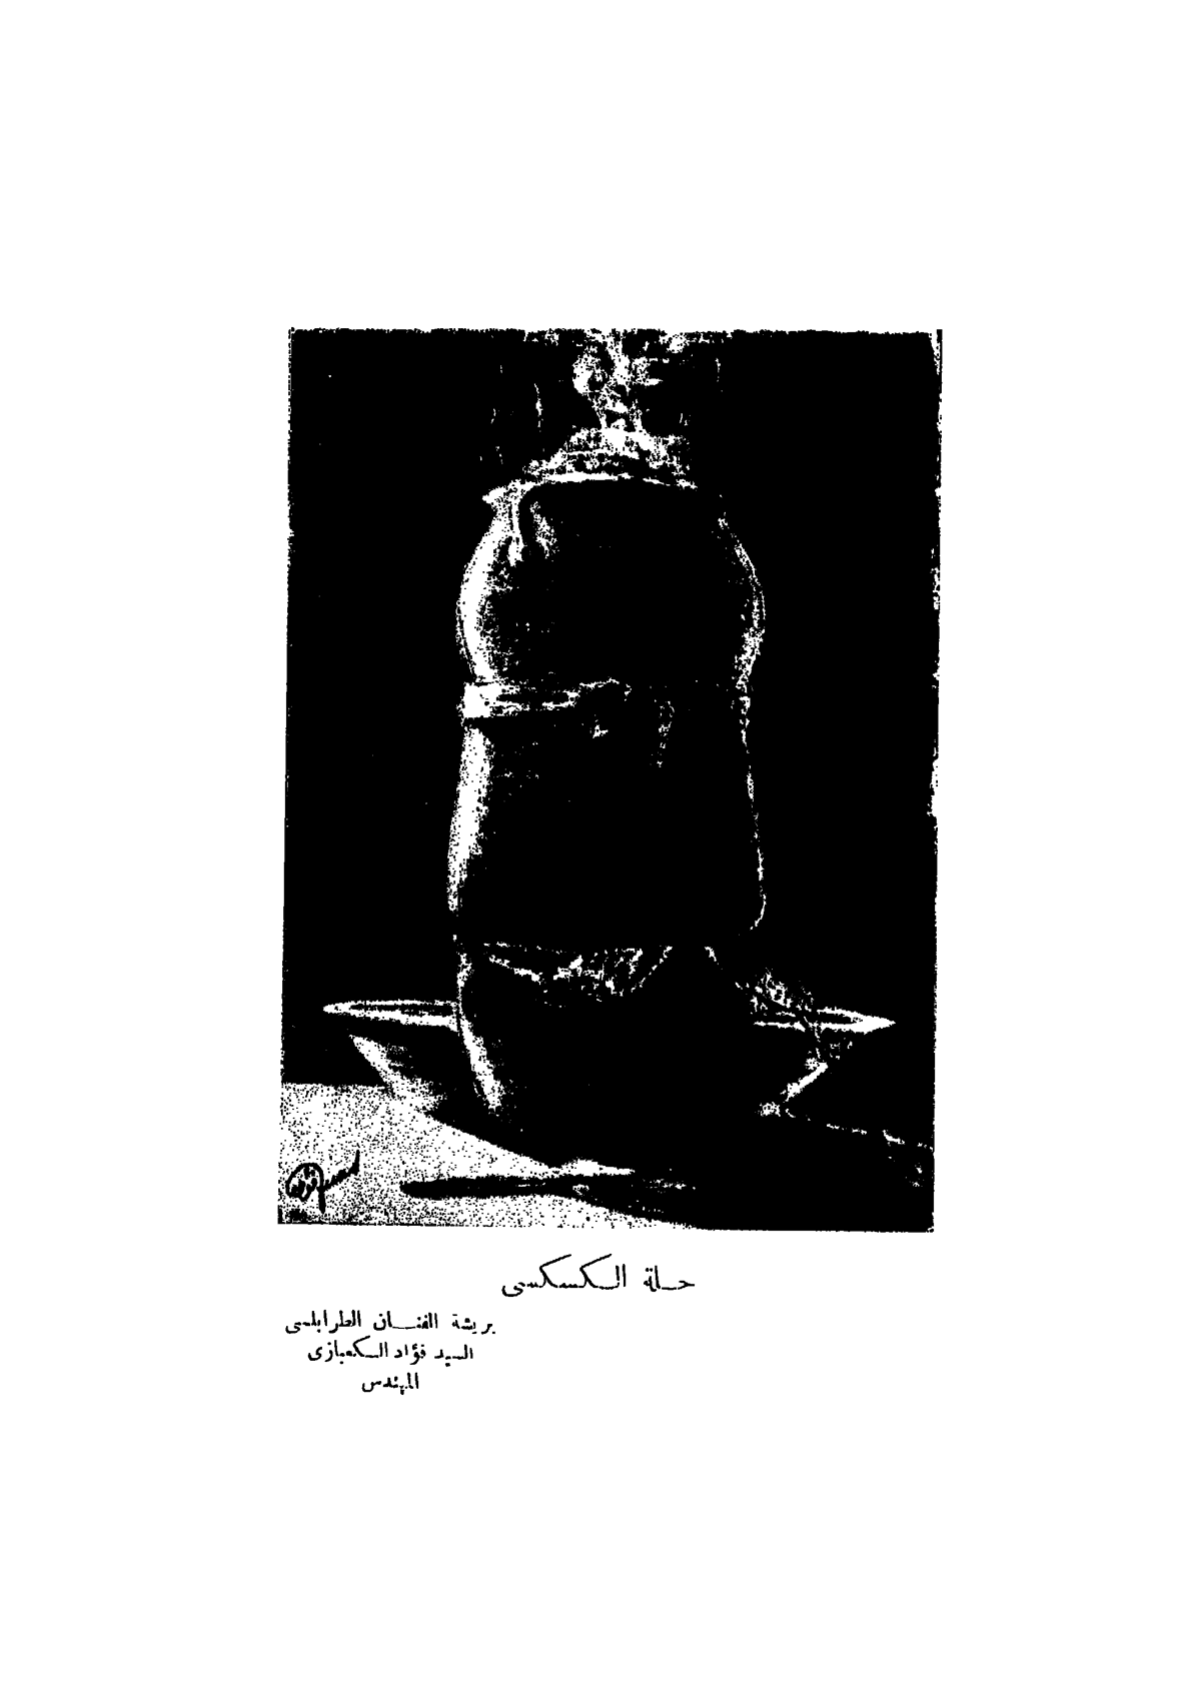 حلة الكسكسى
بريشة الفنان الطرابلسى
السيد فؤاد الكعبازى
المهندس